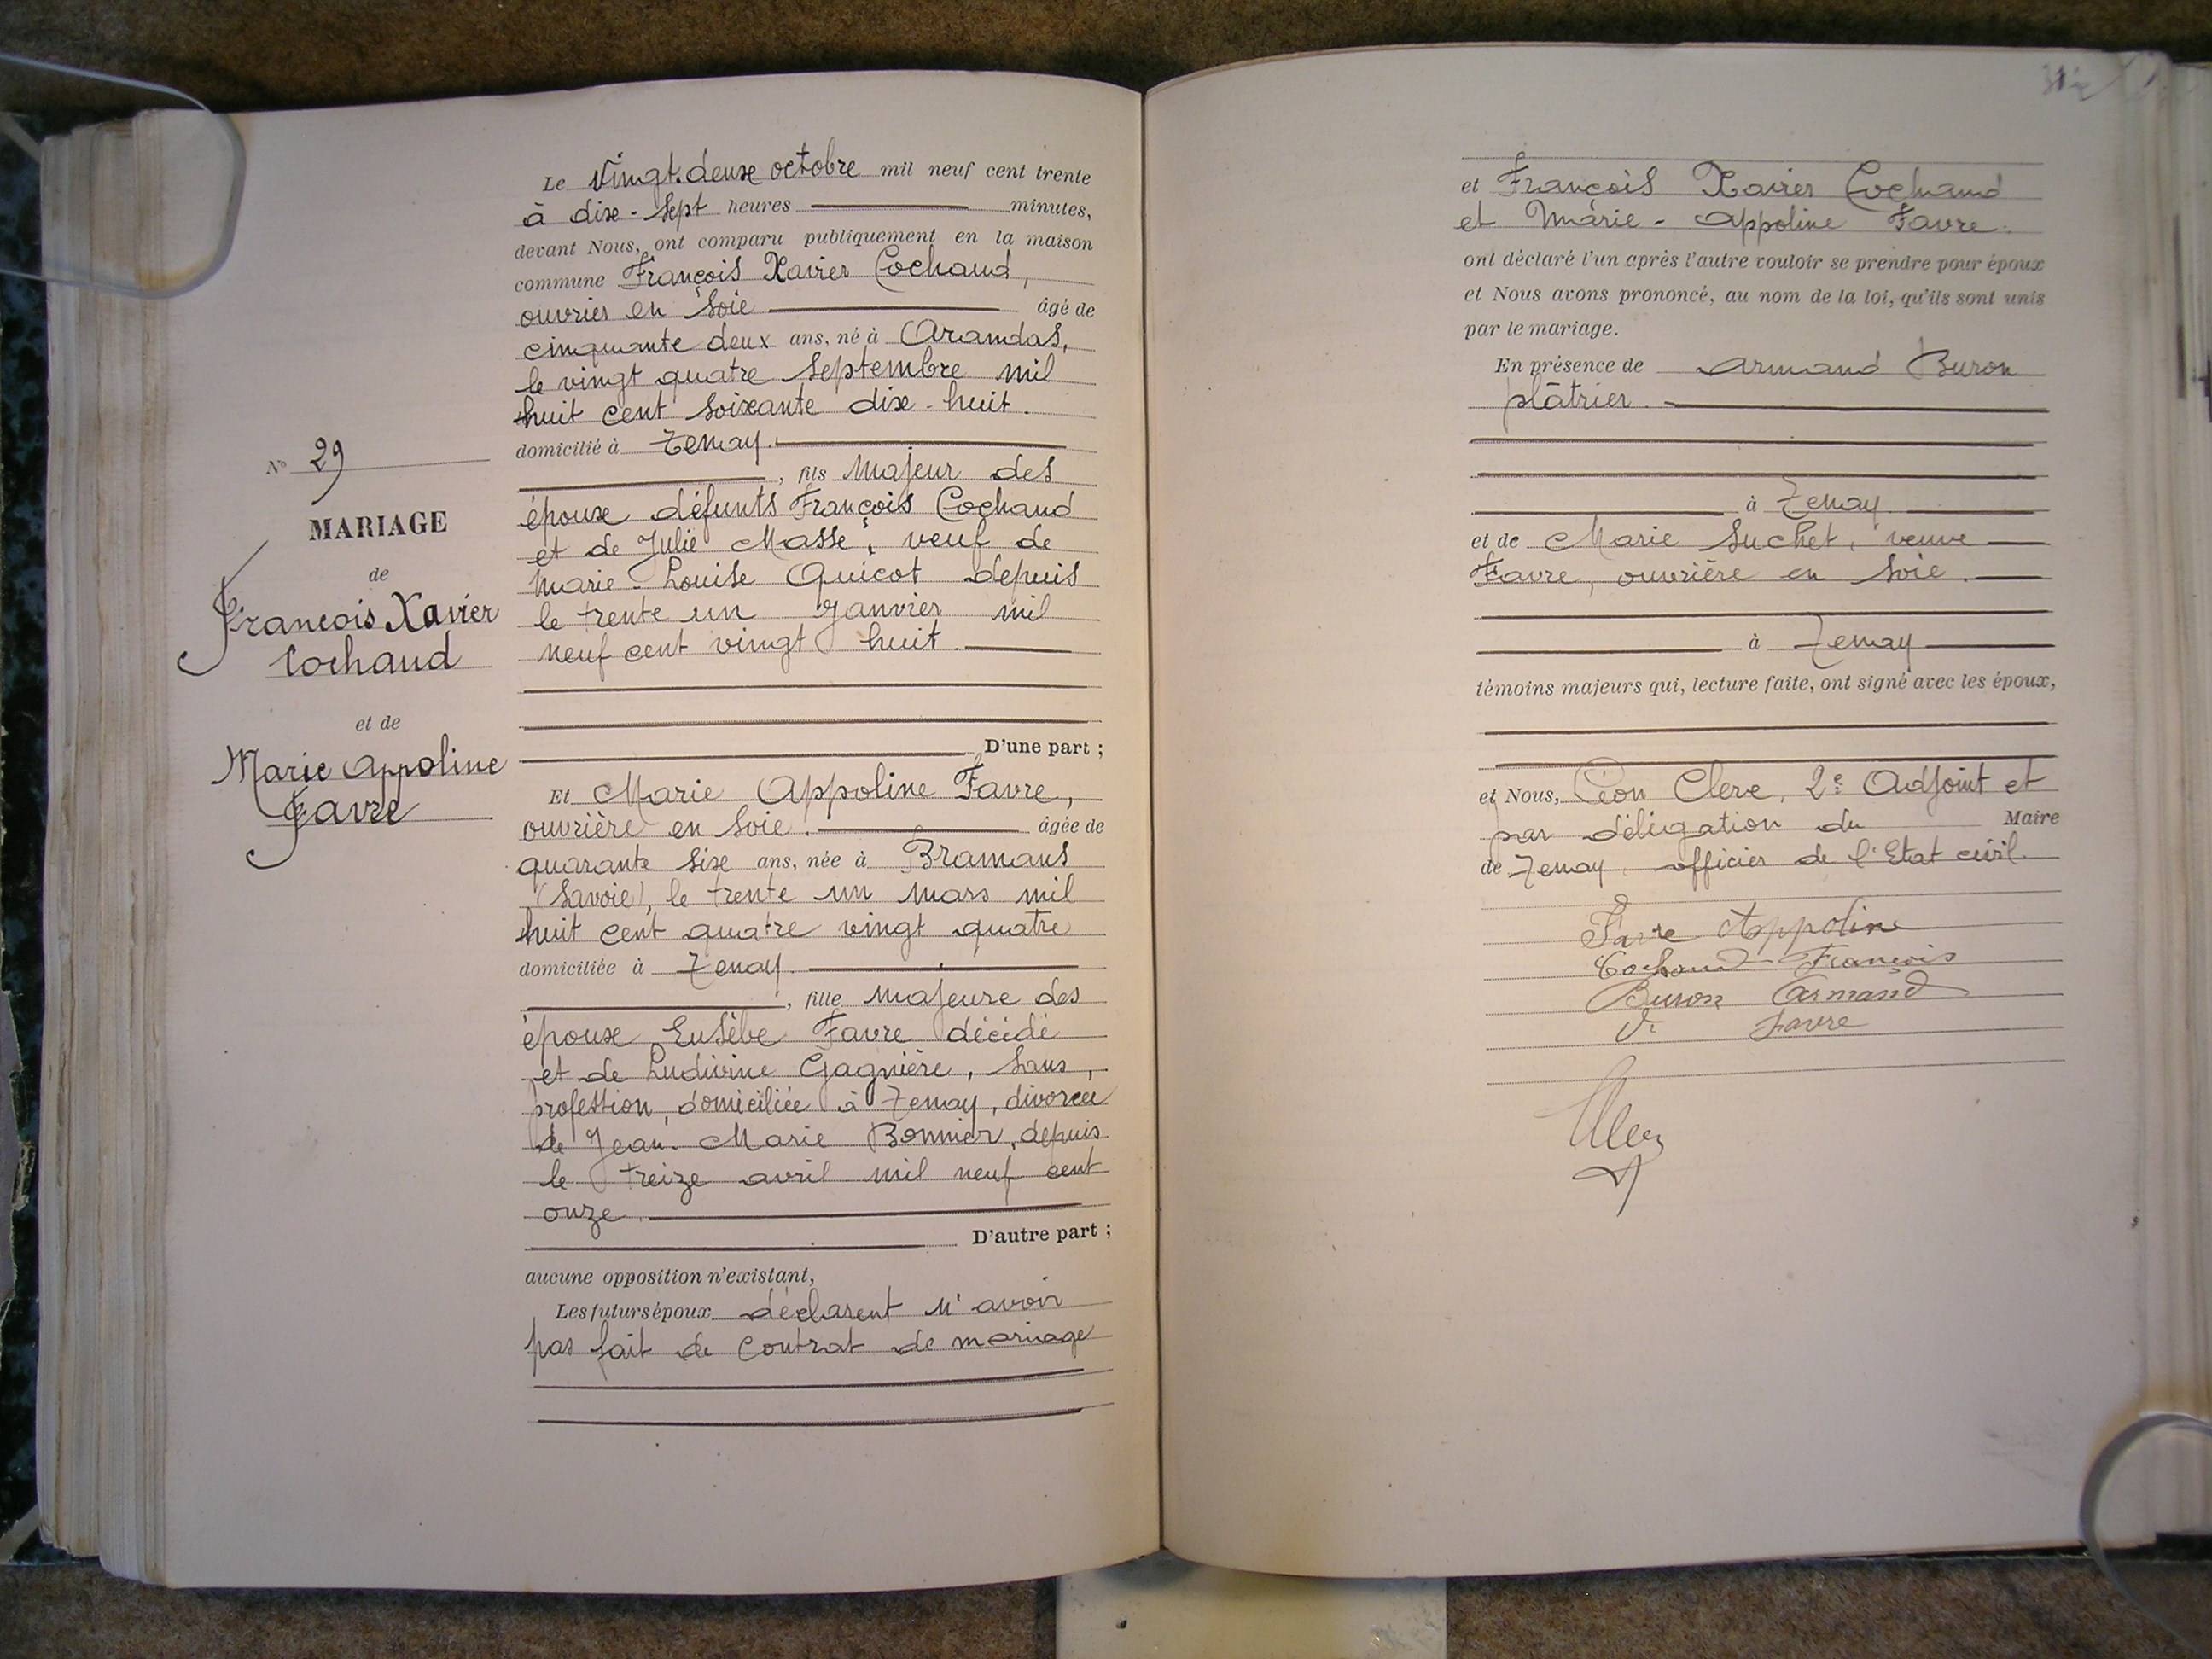 N° 29
MARIAGE
de
François Xavier
Cochaud
et de
Marie Appoline
Favre
Le vingt-deux octobre mil neuf cent trente
à dix-sept heures minutes,
devant Nous, ont comparu publiquement en la maison
commune François Xavier Cochaud,
ouvrier en soie âgé de
cinquante deux ans, né à Arandas,
le vingt quatre septembre mil
huit cent soixante dix-huit.
domicilié à Tenay.
, fils majeur des
époux défunts François Cochaud
et de Julie Masse, veuf de
Marie-Louise Quicot depuis
le trente un janvier mil
neuf cent vingt huit.
D'une part ;
Et Marie Appoline Favre,
ouvrière en soie. âgée de
quarante six ans, née à Bramans
(Savoie), le trente un mars mil
huit cent quatre vingt quatre
domiciliée à Tenay.
, fille majeure des
époux Eusèbe Favre décédé
et de Ludivine Gagnière, sans,
profession, domiciliée à Tenay, divorcée
de Jean-Marie Bonnier, depuis
le treize avril mil neuf cent
onze.
D'autre part ;
aucune opposition n'existant,
Les futurs époux déclarent n'avoir
pas fait de contrat de mariage
et François Xavier Cochaud
et Marie-Appoline Favre.
ont déclaré l'un après l'autre vouloir se prendre pour époux
et Nous avons prononcé, au nom de la loi, qu'ils sont unis
par le mariage.
En présence de Armand Buron
plâtrier.
à Tenay.
et de Marie Suchet, veuve
Favre, ouvrière en soie.
à Tenay
témoins majeurs qui, lecture faite, ont signé avec les époux,
et Nous, Léon Clere, 2e Adjoint et
par délégation du Maire
de Tenay officier de l'Etat civil.
Favre Appoline
Cochaud François
Buron Armand
Ve Favre